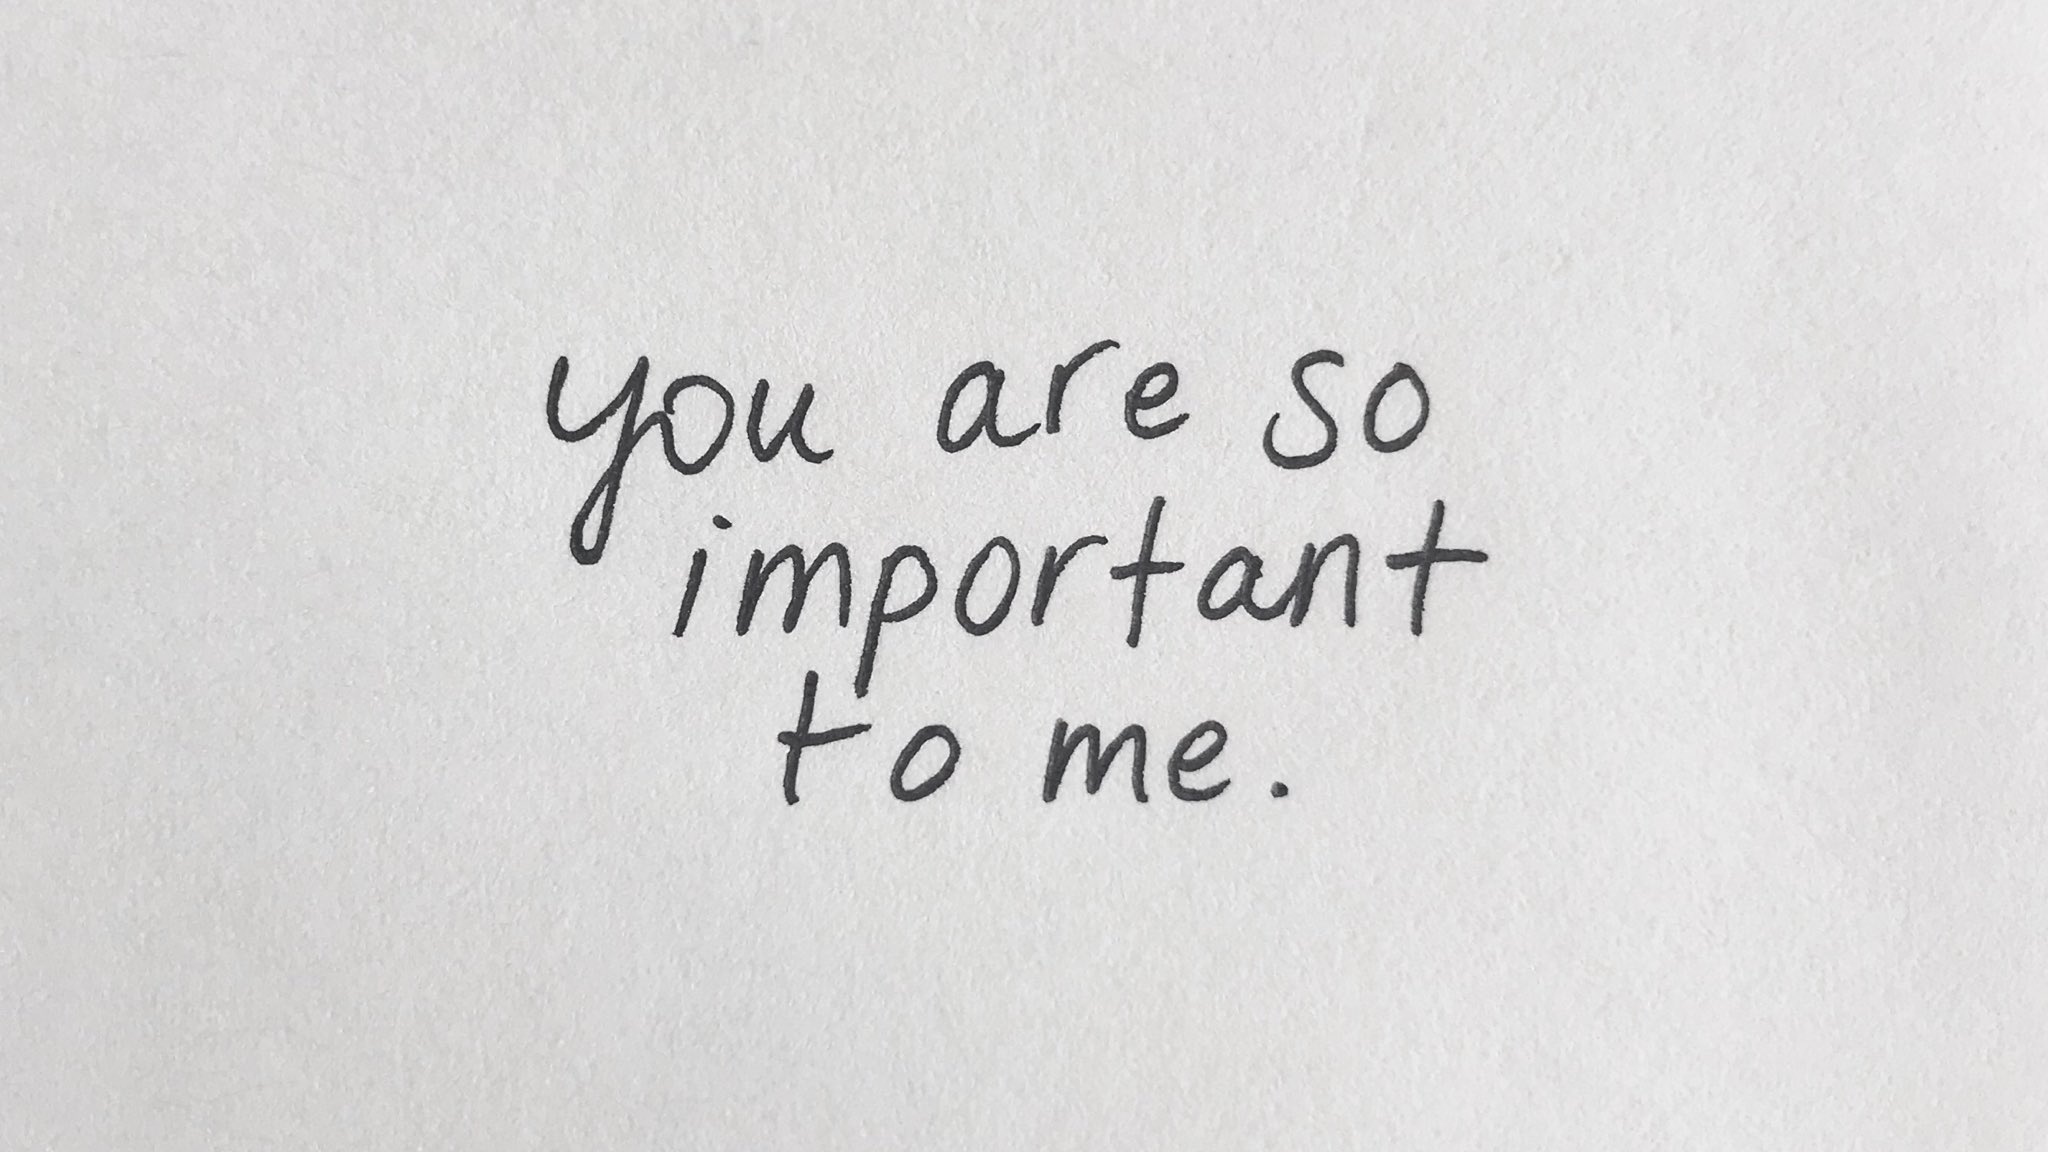 you are so
important
to me.